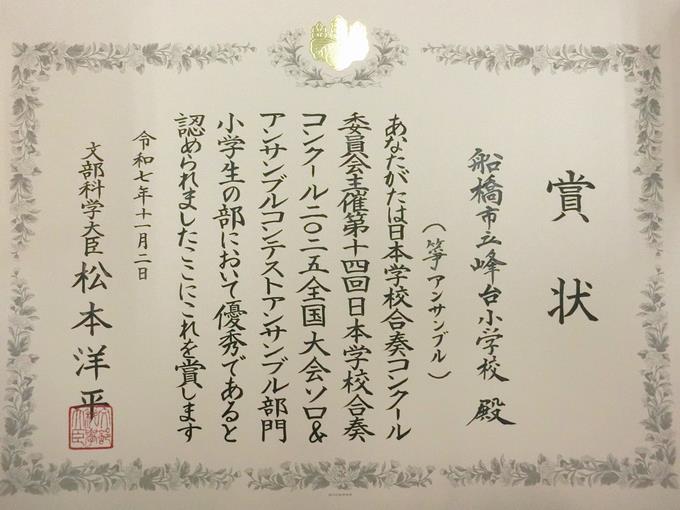 賞状
船橋市立峰台小学校 殿
(箏アンサンブル)
あなたがたは日本学校合奏コンクール
委員会主催第十四回日本学校合奏
コンクール二〇二五全国大会ソロ&
アンサンブルコンテストアンサンブル部門
小学生の部において優秀であると
認められましたここにこれを賞します
令和七年十一月二日
文部科学大臣 松本洋平